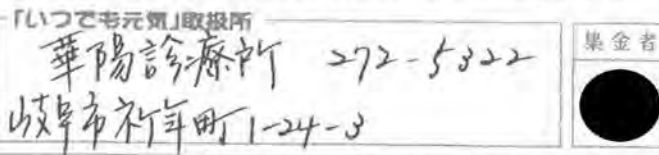 「いつでも元気」取扱所
集金者
華陽診療所 272-5322
岐阜市祈年町1-24-3